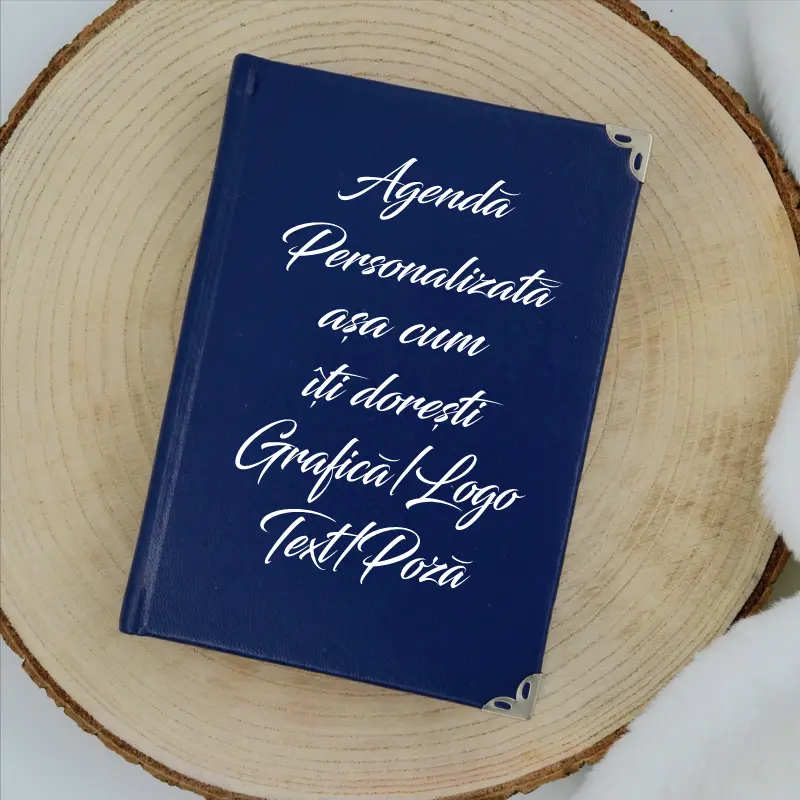 Agendă
Personalizată
așa cum
îți dorești
Grafică/Logo
Text/Poză